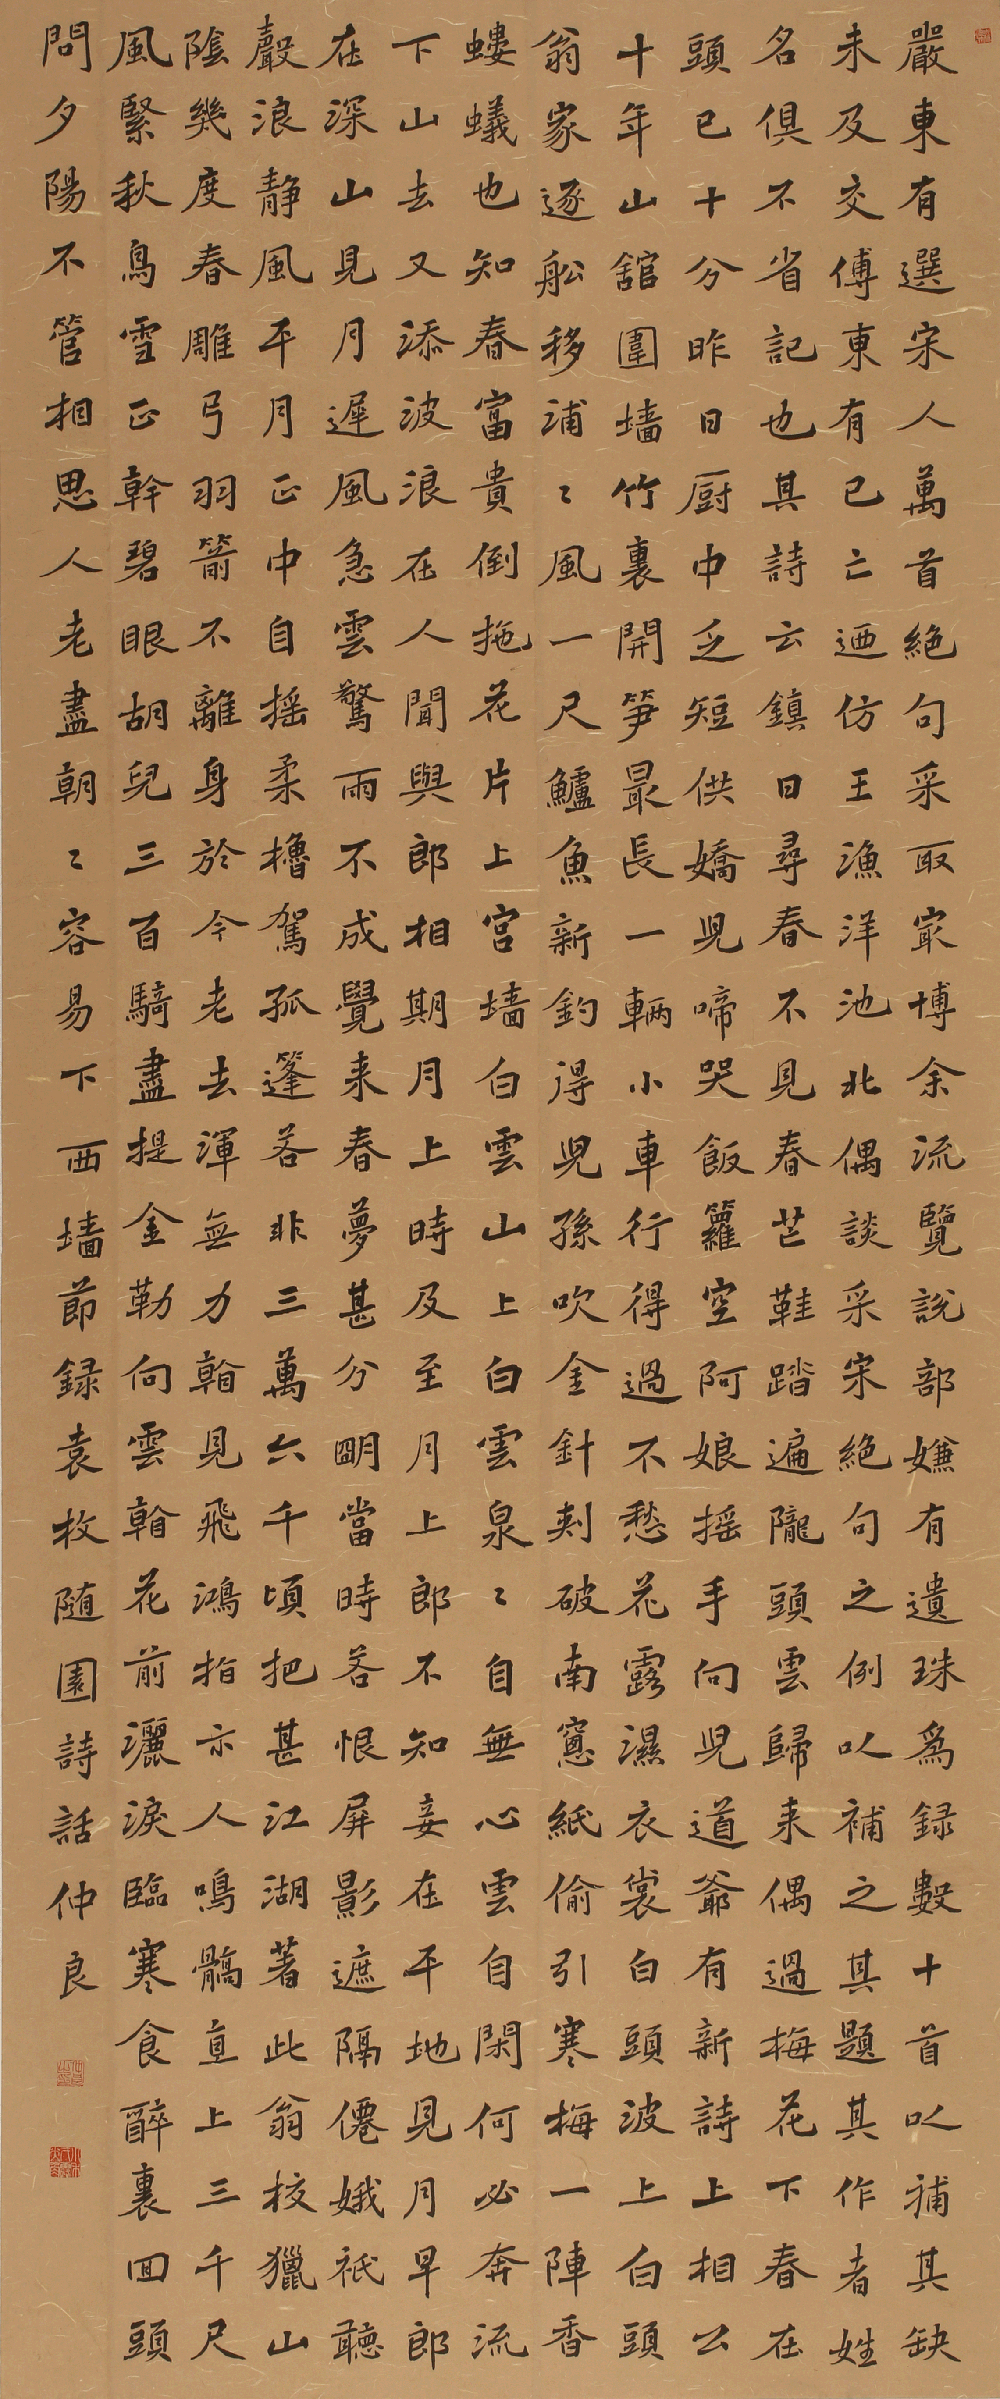 嚴東有選宋人萬首絕句采取寂博余流覽說部嫌有遺珠為録數十首以補其缺
未及交傅東有已亡迺仿王漁洋池北偶談采宋絕句之例以補之其題其作者姓
名俱不省記也其詩云鎮日尋春不見春芒鞋踏遍隴頭雲歸来偶過梅花下春在
頭已十分昨日厨中乏短供嬌兒啼哭飯籮空阿娘摇手向兒道爺有新詩上相公
十年山舘圍墻竹裏開笋最長一輛小車行得過不愁花露濕衣裳白頭波上白頭
翁家逐船移浦〻風一尺鱸魚新釣得兒孫吹金針刺破南窻紙偷引寒梅一陣香
螻蟻也知春富貴倒拖花片上宫墻白雲山上白雲泉〻自無心雲自閑何必奔流
下山去又添波浪在人聞與郎相期月上時及至月上郎〻不知妾在平地見月早郎
在深山見月遲風急雲驚雨不成覺来春夢甚分朙當時若恨屏影遮隔僊娥祇聽
聲浪靜風平月正中自摇柔櫓駕孤篷若非三萬六千頃把甚江湖著此翁校獵山
陰幾度春雕弓羽箭不離身於今老去渾無力翰見飛鴻指示人鳴髇直上三千尺
風緊秋鳥雪正幹碧眼胡兒三百騎盡提金勒向雲翰花前灑淚臨寒食醉裏回頭
問夕陽不管相思人老盡朝〻容易下西墻節録袁枚随園詩話仲良